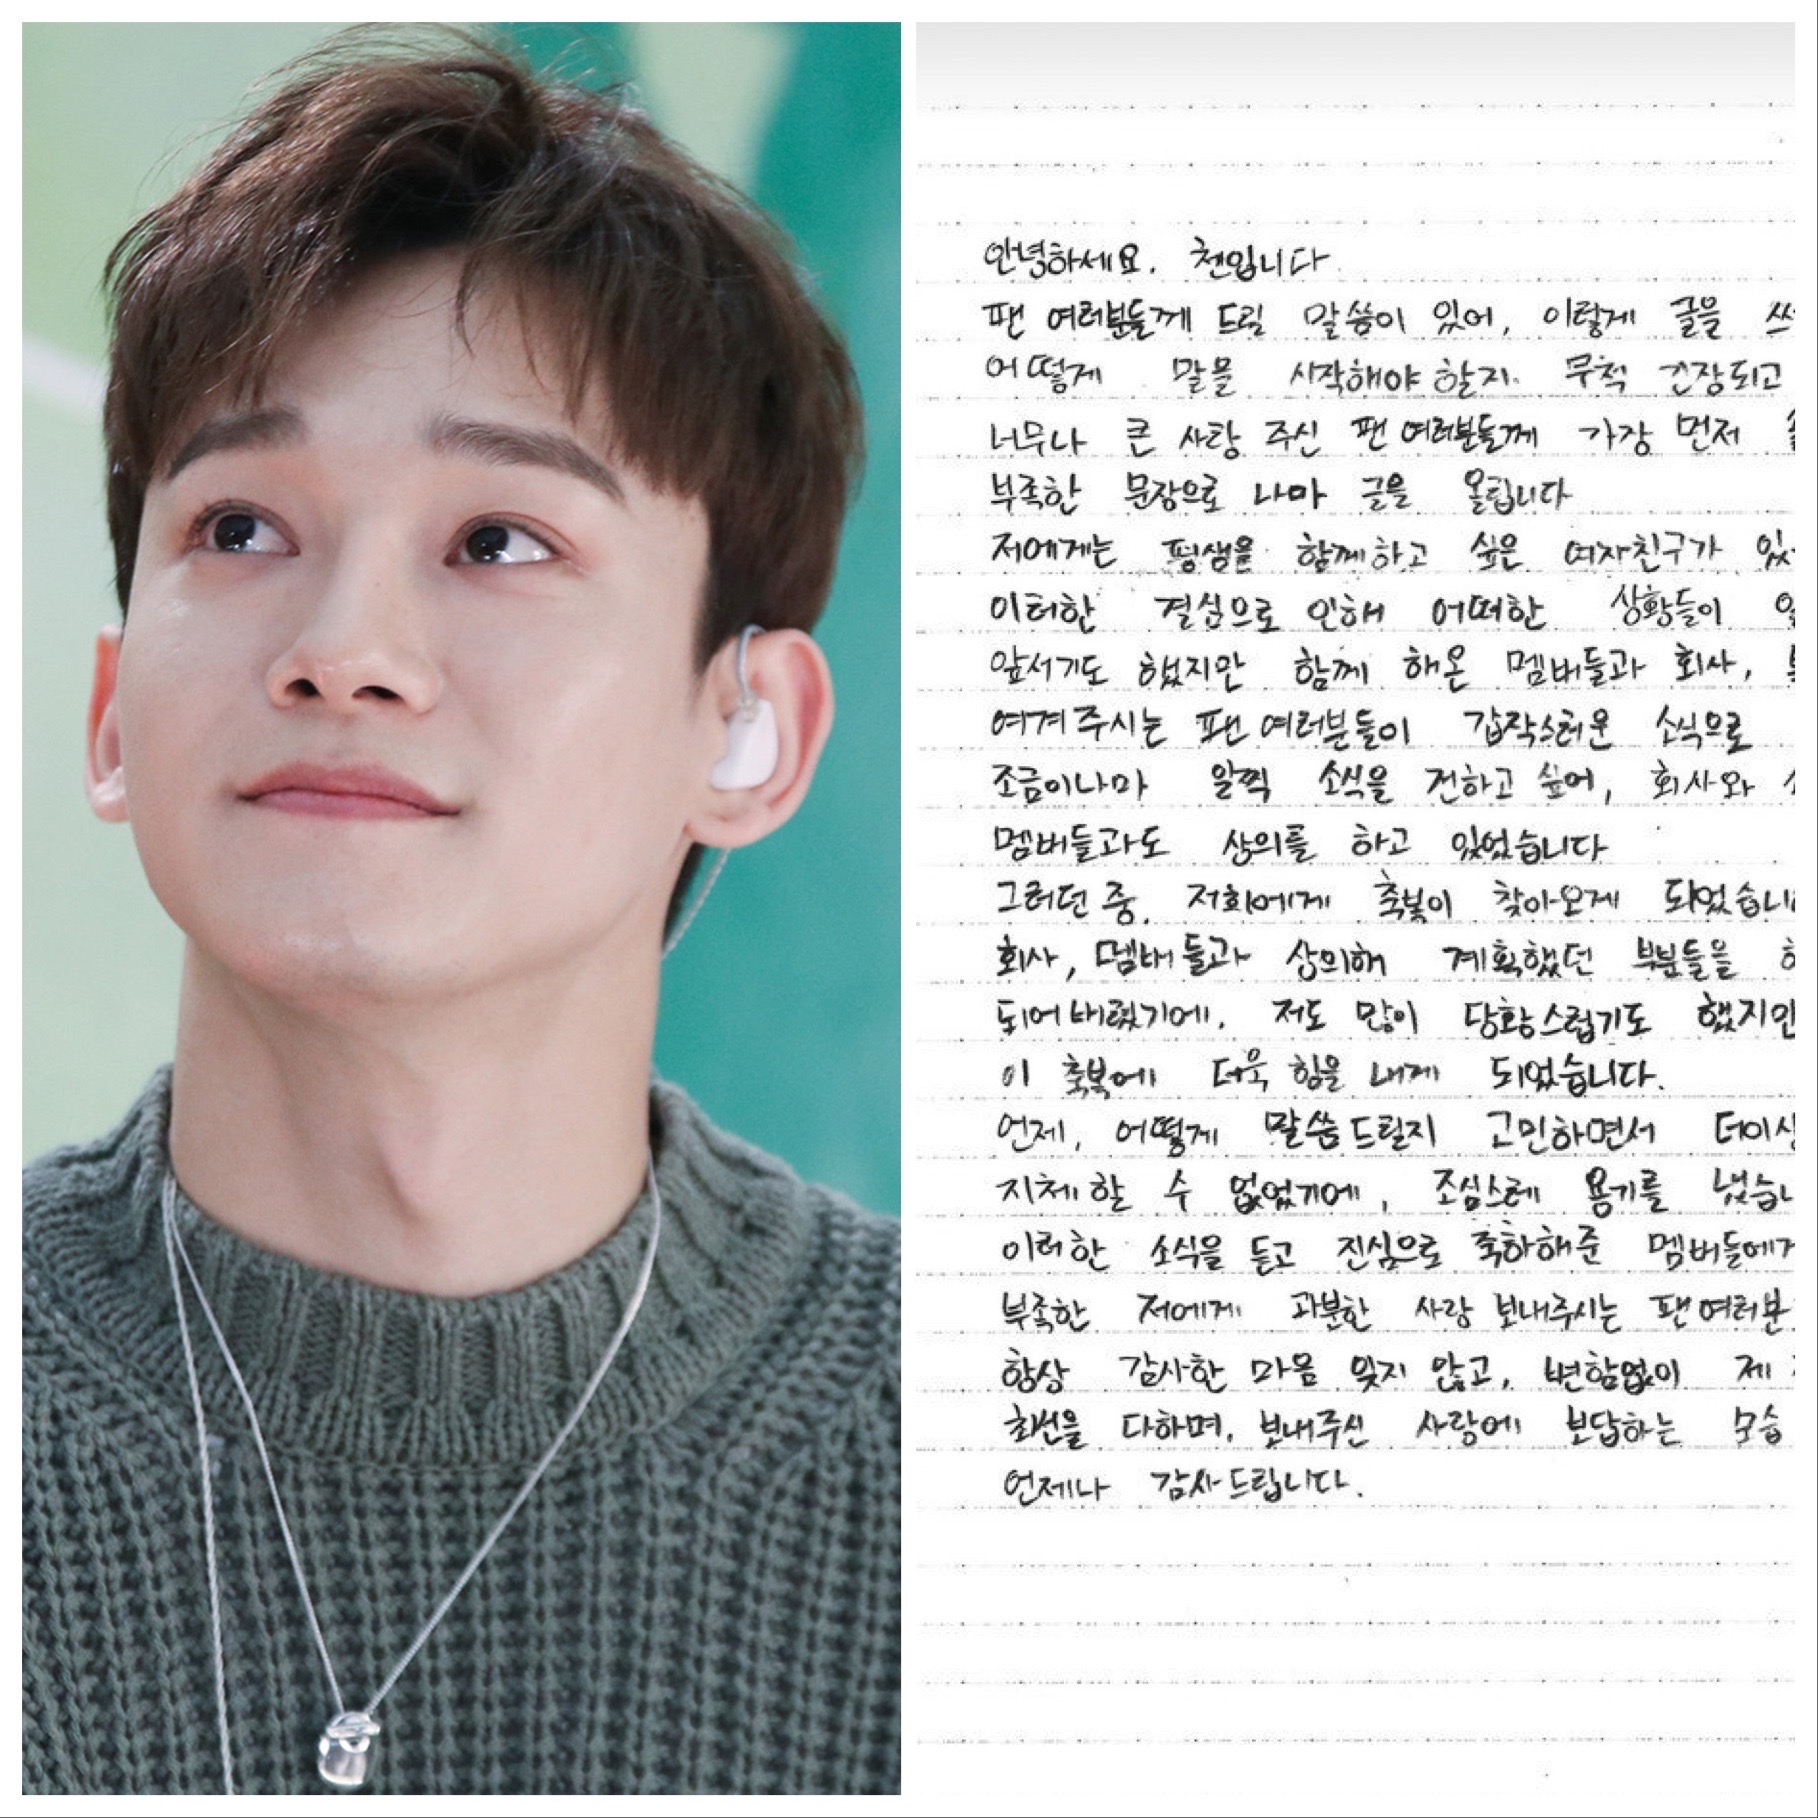 안녕하세요. 첸입니다.
팬 여러분들께 드릴 말씀이 있어, 이렇게 글을
어떻게 말을 시작해야 할지. 무척 긴장되고
너무나 큰 사랑 주신 팬 여러분들께 가장 먼저
부족한 문장으로 나마 글을 올립니다
저에게는 평생을 함께하고 싶은 여자친구가
이러한 결심으로 인해 어떠한 상황들이
앞서기도 했지만 함께 해온 멤버들과 회사,
여겨주시는 팬 여러분들이 갑작스러운 소식으로
조금이나마 일찍 소식을 전하고 싶어, 회사와
멤버들과도 상의를 하고 있었습니다
그러던 중, 저희에게 축복이 찾아오게 되었습니
회사, 멤버들과 상의해 계획했던 부분들을
되어버렸기에. 저도 많이 당황스럽기도 했지만
이 축복에 더욱 힘을 내게 되었습니다.
언제, 어떻게 말씀드릴지 고민하면서 더이상
지체할 수 없었기에, 조심스레 용기를 냈습니
이러한 소식을 듣고 진심으로 축하해준 멤버들에게
부족한 저에게 과분한 사랑 보내주시는 팬여러분
항상 감사한 마음 잊지 않고, 변함없이 제
최선을 다하며, 보내주신 사랑에 보답하는 모습
언제나 감사드립니다.